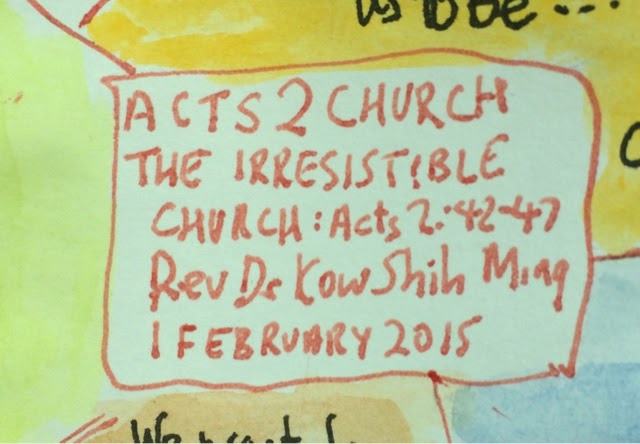 us to be ...
ACTS 2 CHURCH
THE IRRESISTIBLE
CHURCH: Acts 2:42-47
Rev Dr Kow Shih Ming
1 FEBRUARY 2015
We want